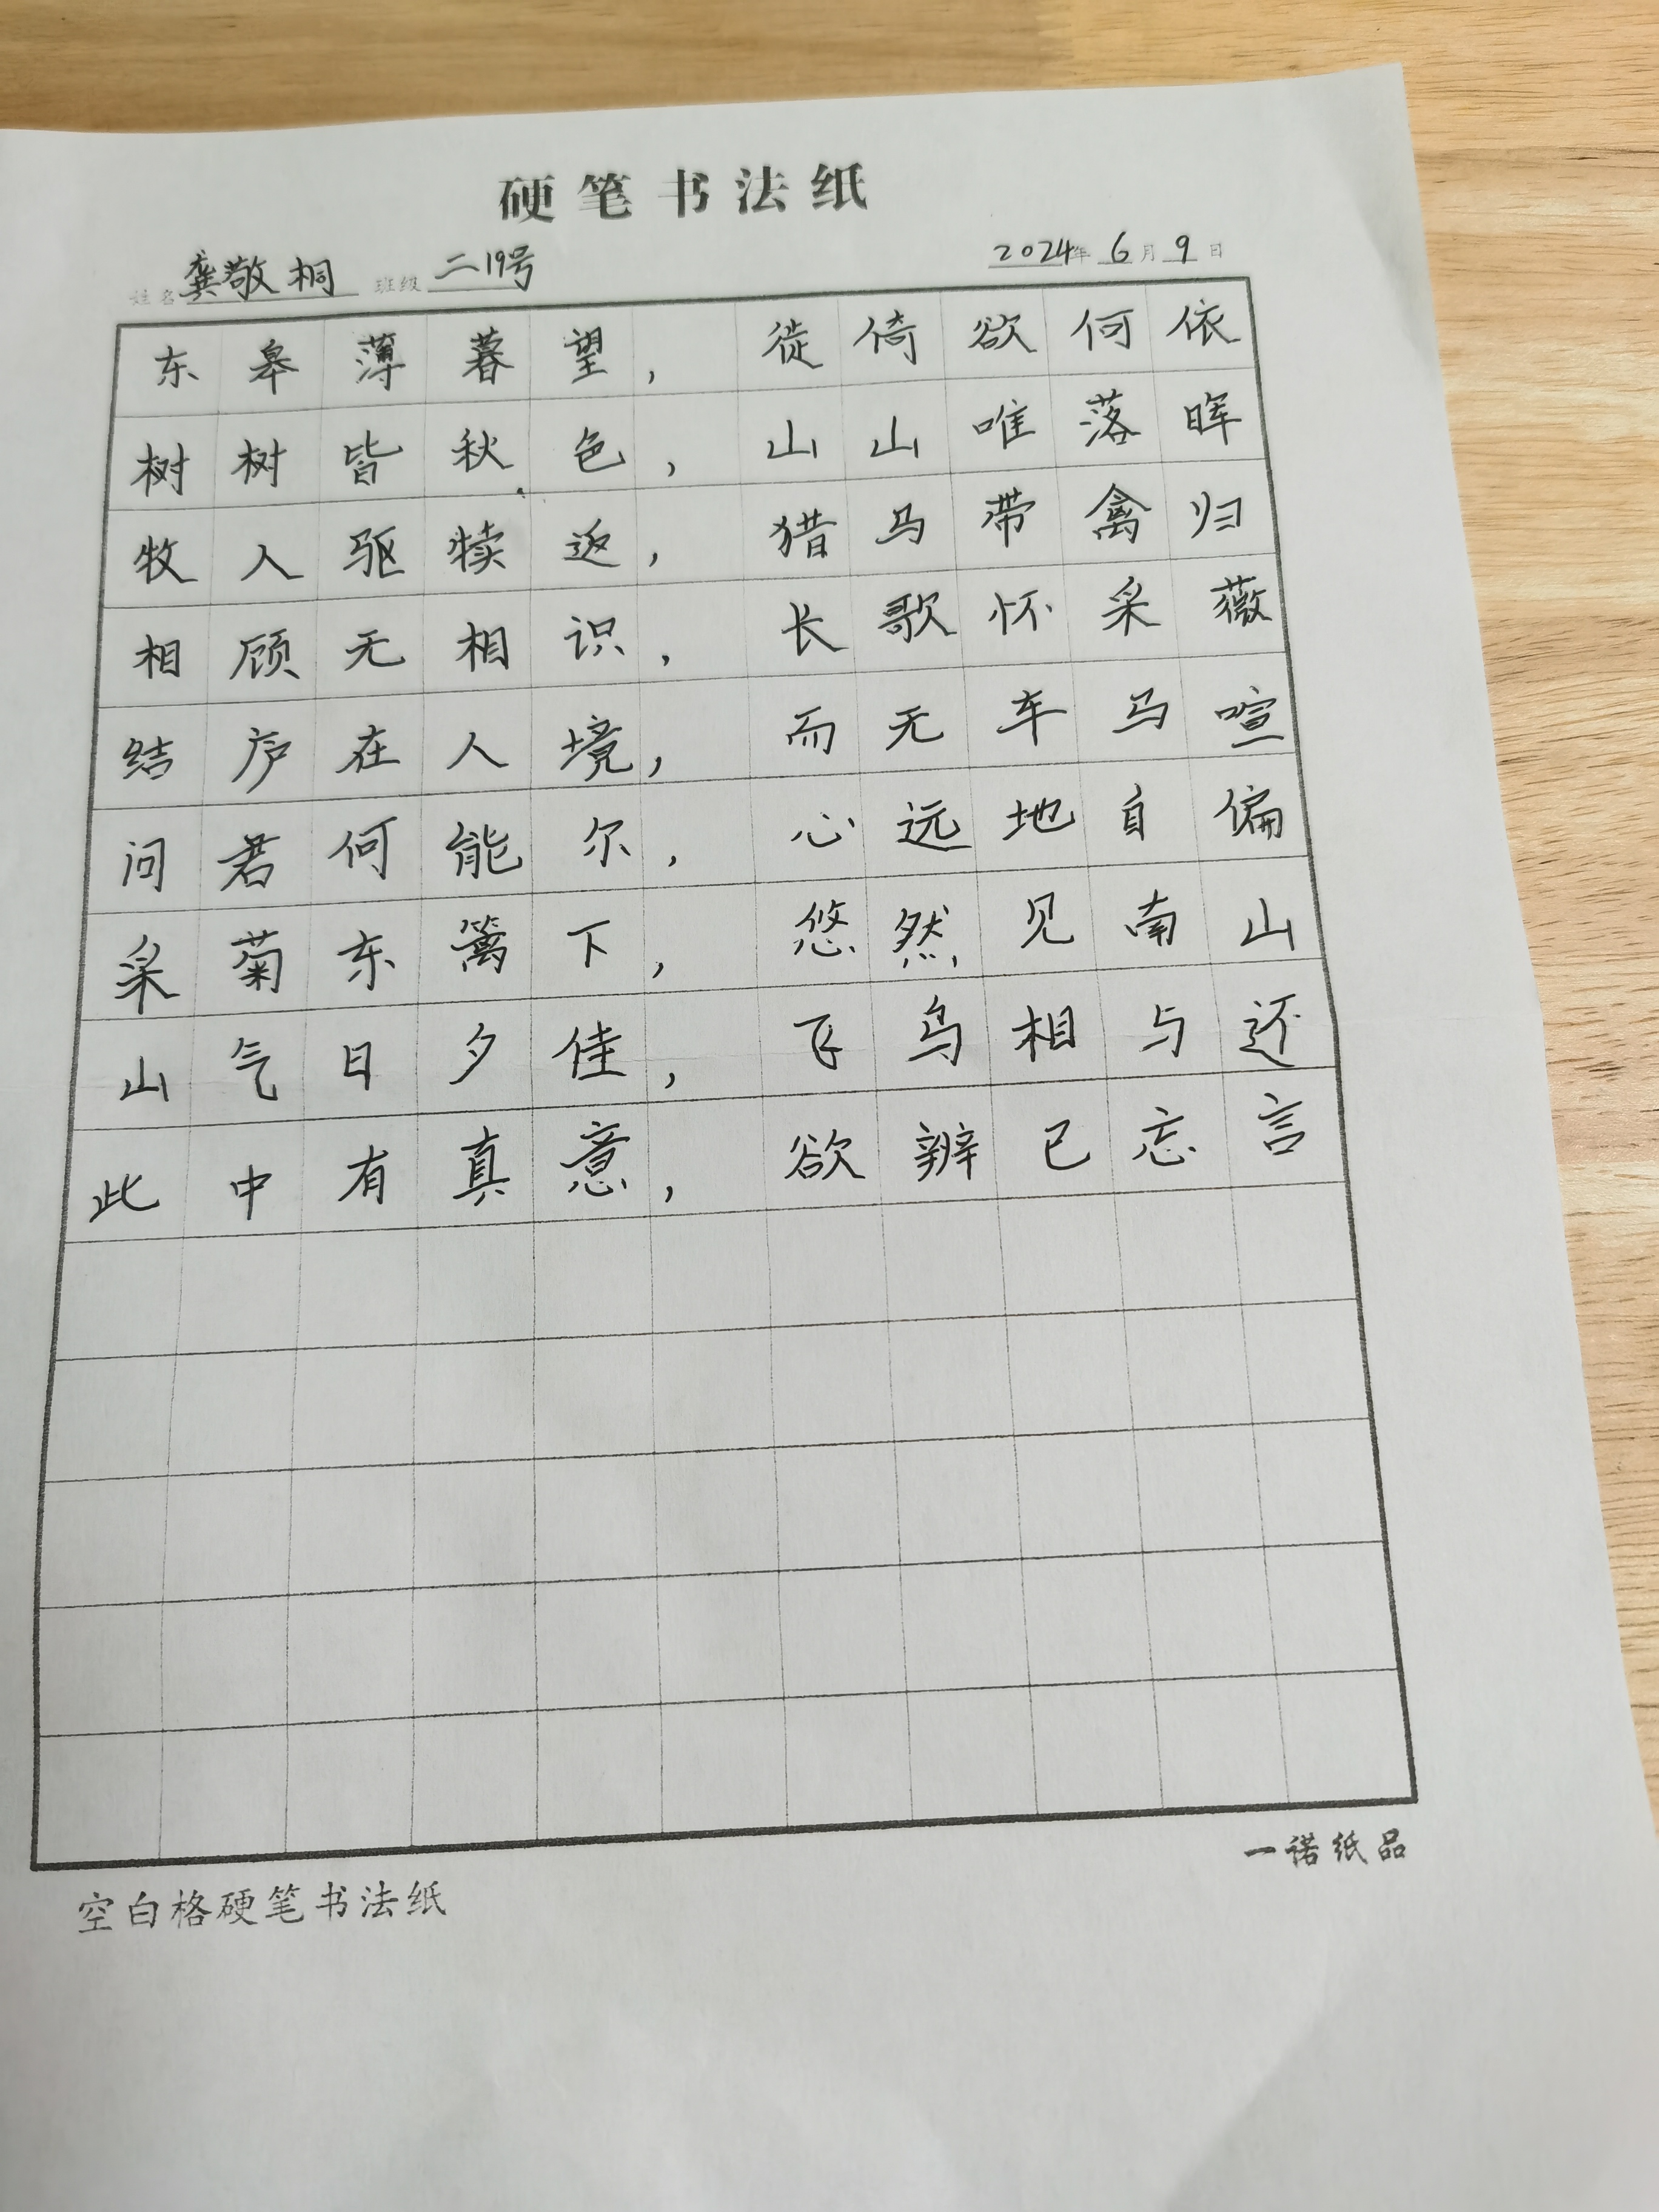 硬笔书法纸
姓名 龚敬桐 班级 二19号 2024年6月9日
东皋薄暮望，徙倚欲何依
树树皆秋色，山山唯落晖
牧人驱犊返，猎马带禽归
相顾无相识，长歌怀采薇
结庐在人境，而无车马喧
问君何能尔，心远地自偏
采菊东篱下，悠然见南山
山气日夕佳，飞鸟相与还
此中有真意，欲辨已忘言
一诺纸品
空白格硬笔书法纸